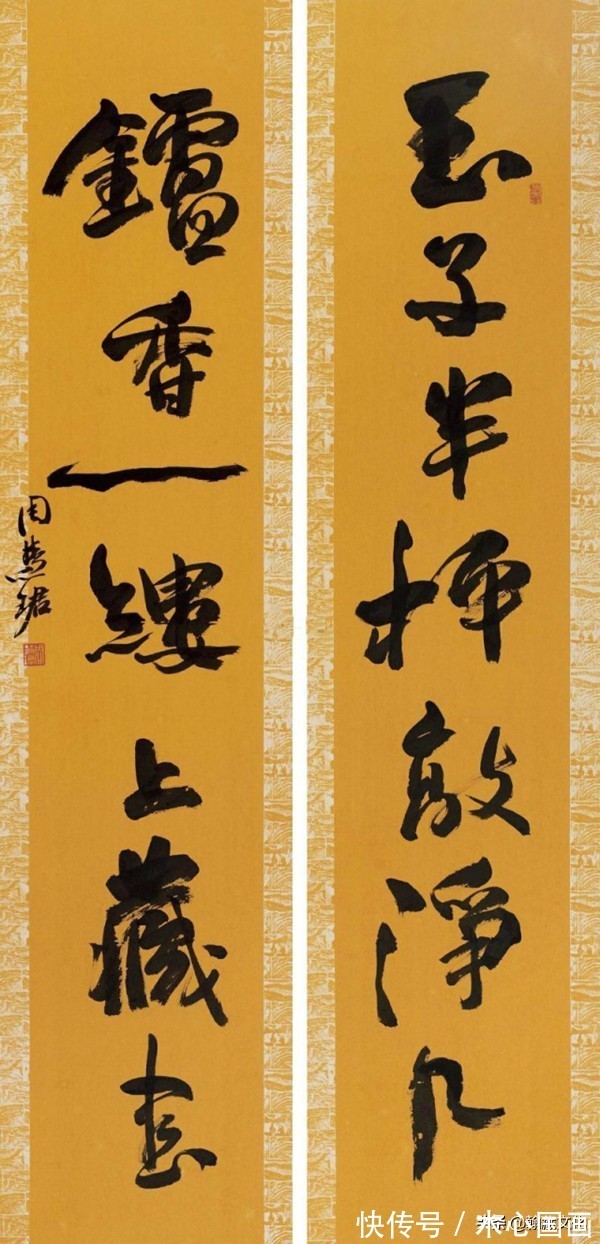 玉子半枰敲淨几
鑪香一縷上藏書
周慧珺
快传号 /